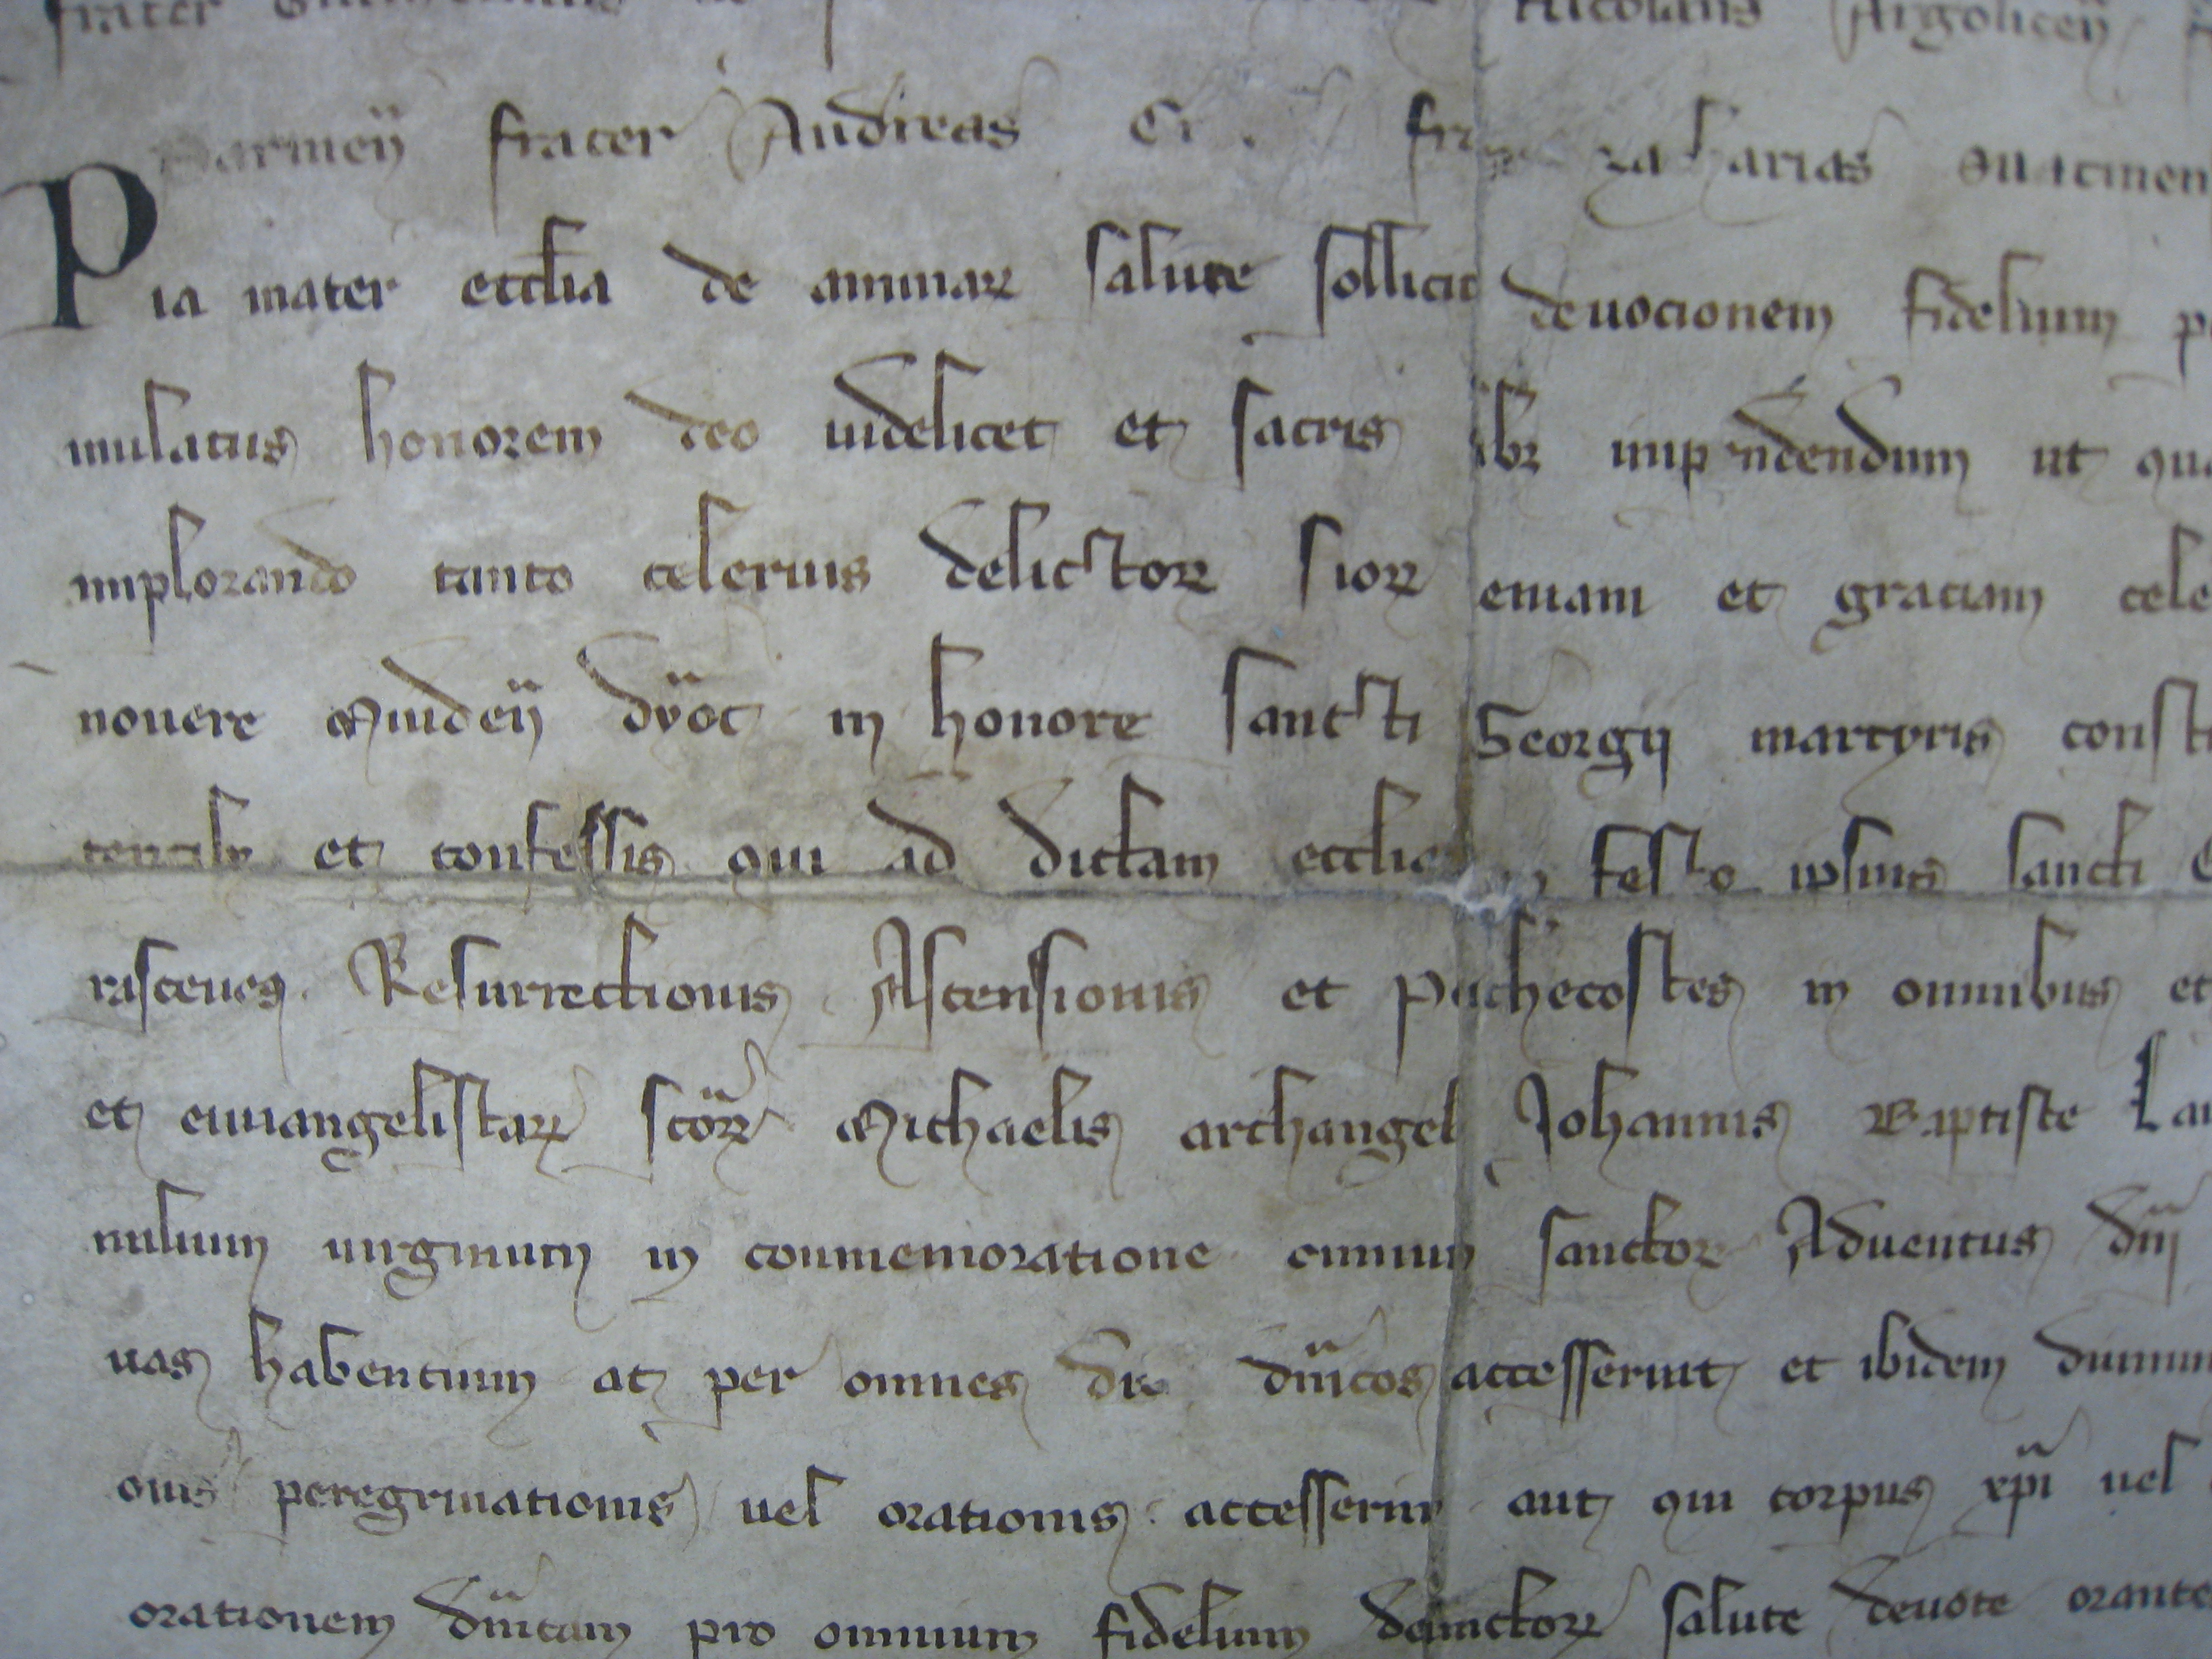 frater Nicolaus Argolicen
frater Andreas
Pia mater ecclia de animarz salute sollicit deuocionem fidelium
mulatus honorem deo uidelicet et sacris ibz ut
implorando tanto celerius delictorz eniam et graciam cele
nouere dyoc in honore sancti Georgij martyris consti
et confessis qui ad dictam ecclia festo ipsius sancti
rasceues Resurrectionis Ascensionis et Pethecostes in omnibus et
et euuangelistarz scorz Michaelis archangel Johannis Baptiste Lau
uirginum in conmemoratione omnium sanctorz Aduentus dni
uas habentium at per omnes dnicos accesserint et ibidem
onis peregrinationis uel orationis accesserint aut qui corpus xpi uel
orationem dnicam pro omnium fidelium defunctorz salute deuote orante